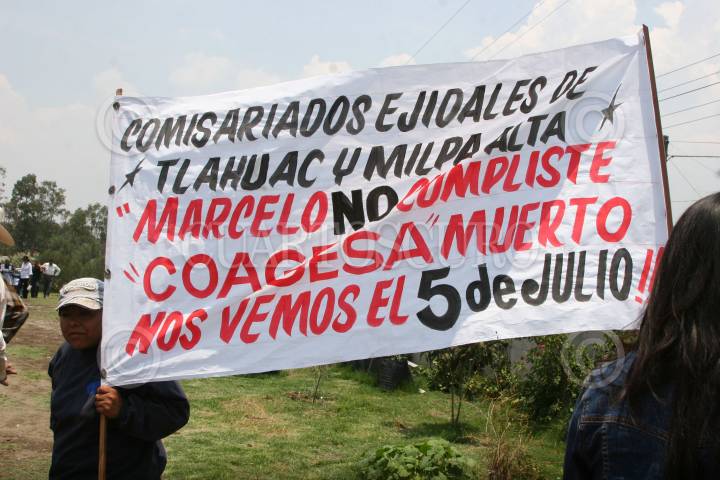 COMISARIADOS EJIDALES DE
TLAHUAC Y MILPA ALTA
"MARCELO NO COMPLISTE
"COAGESA" MUERTO
NOS VEMOS EL 5 de JULIO!!
CUARTOSCURO